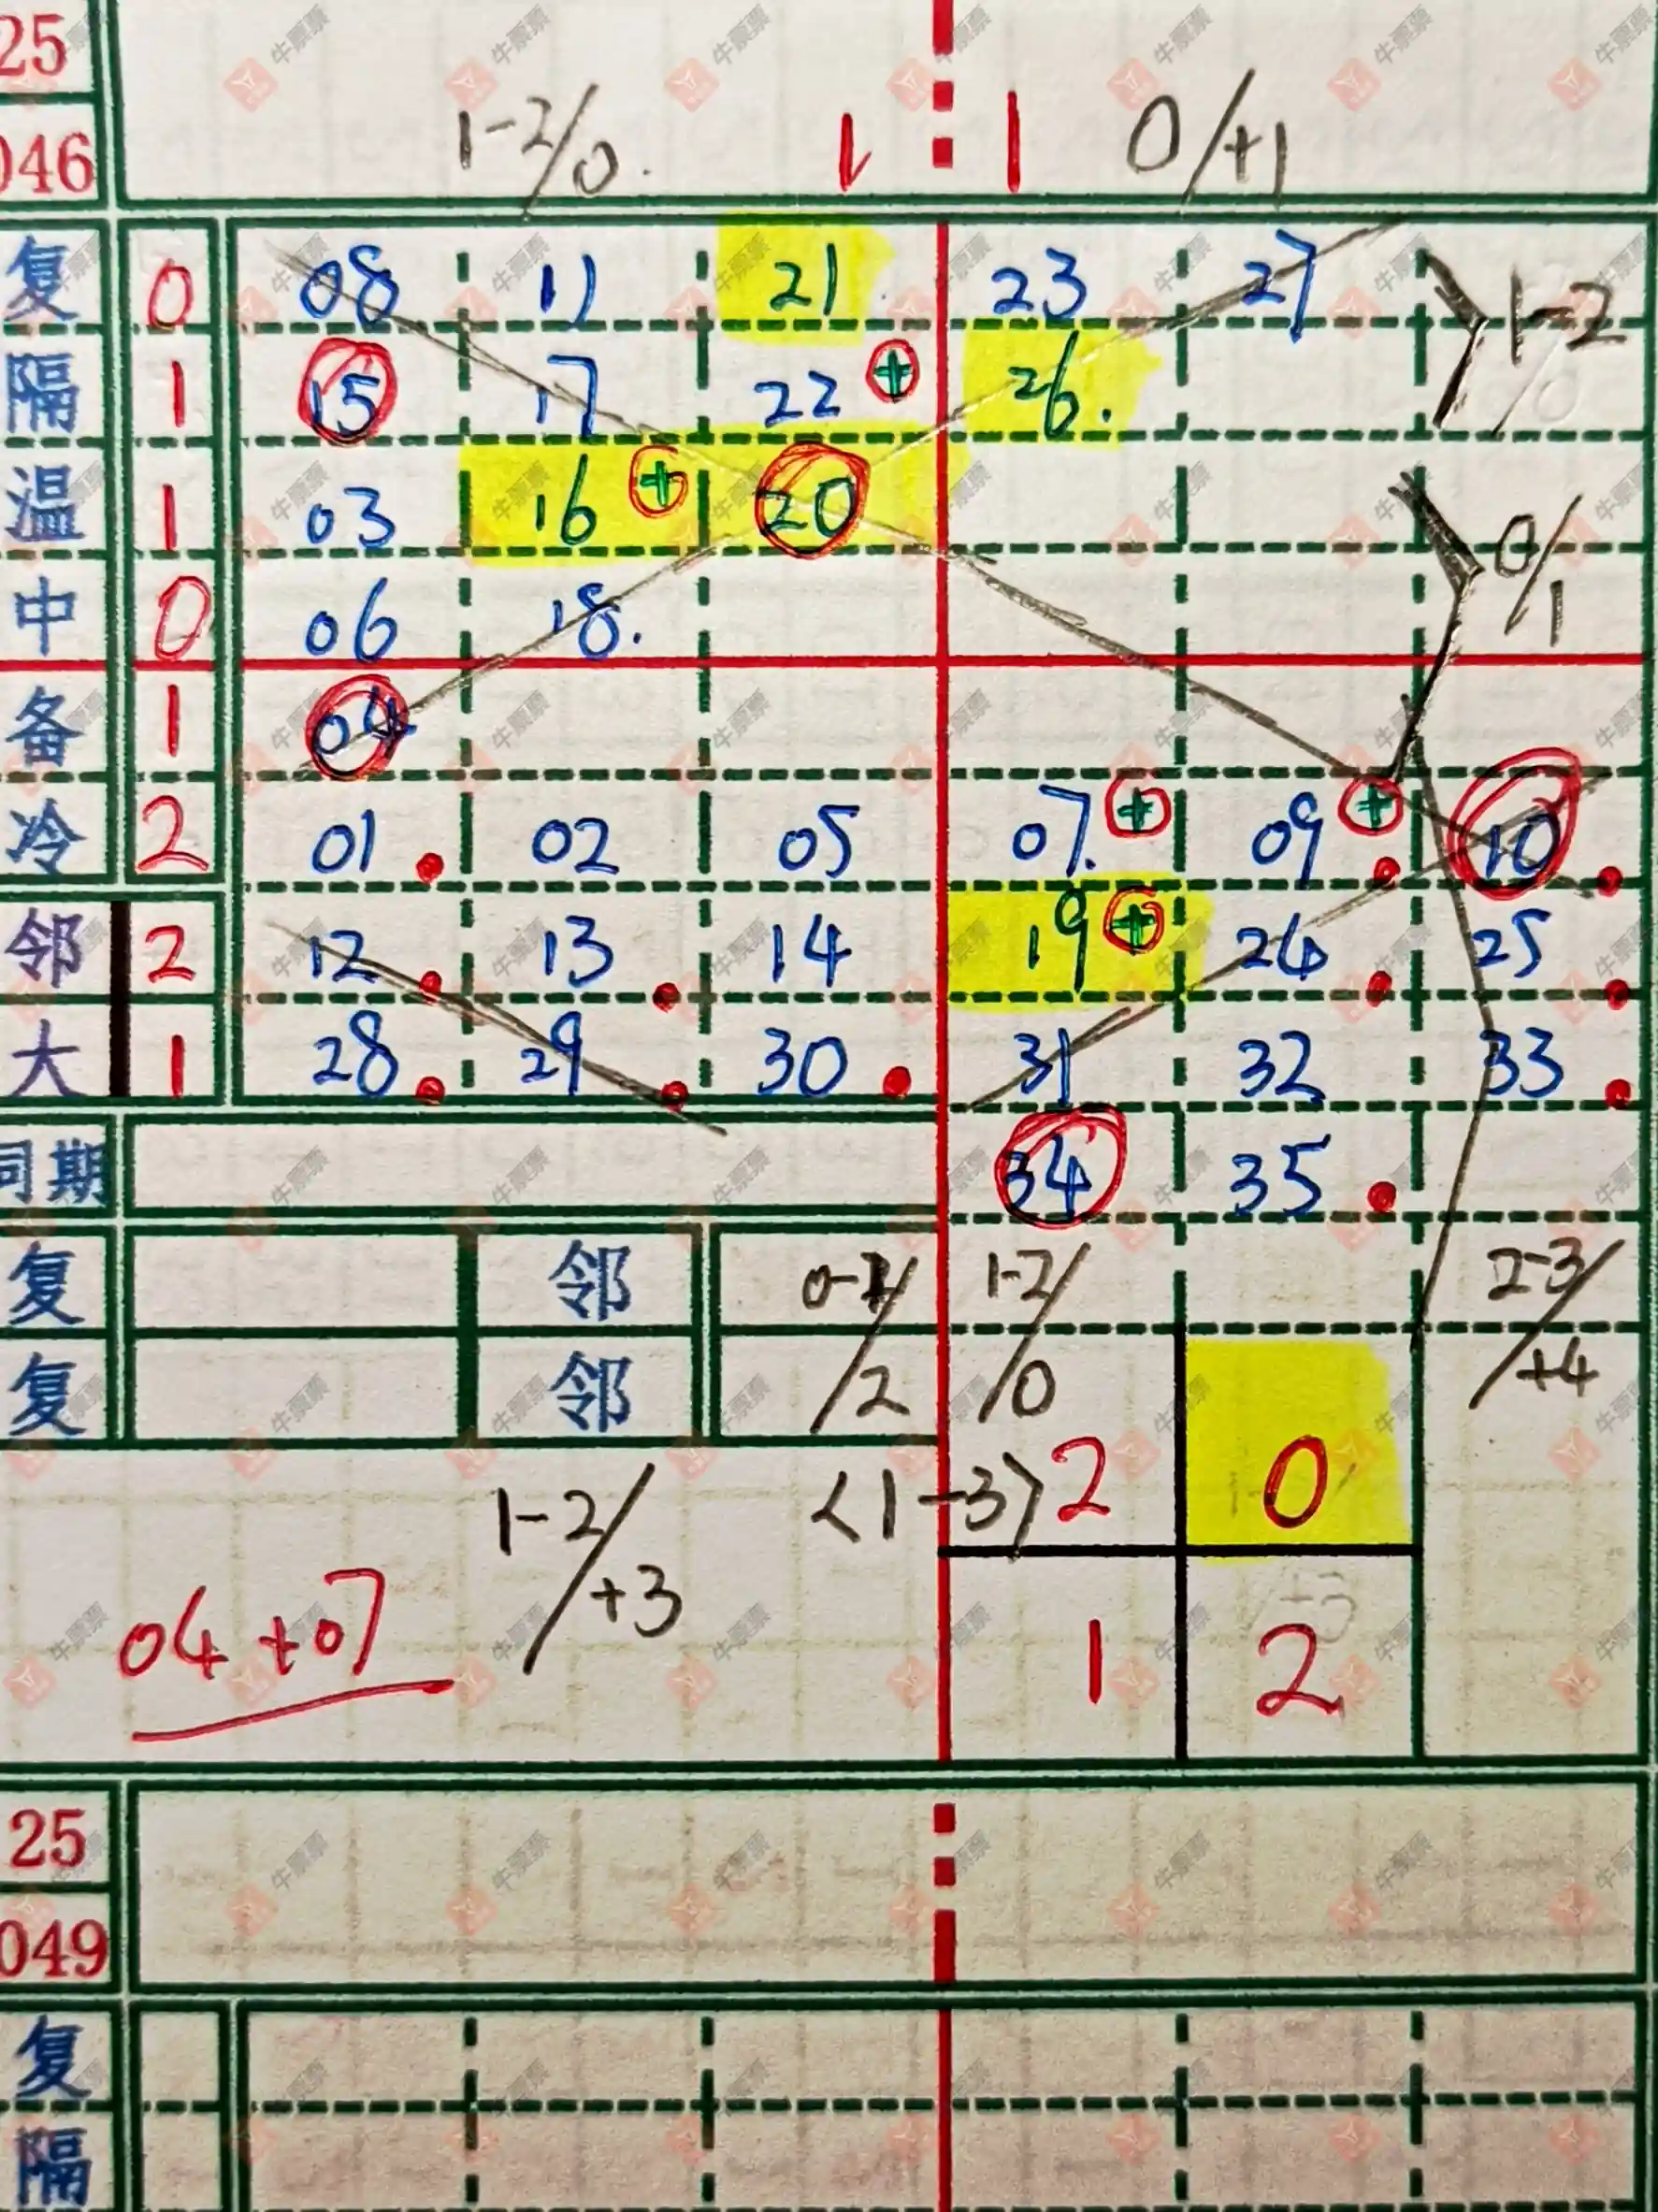 25
046 1-2/0. 1 1 0/+1
复 0 08 11 21 23 27 1-2
隔 1 15 17 22 + 26.
温 1 03 16 + 20 0/1
中 0 06 18.
备 1 04
冷 2 01 02 05 07. + 09 + 10
邻 2 12 13 14 19 + 24 25
大 1 28 29 30 31 32 33
同期 34 35
复 邻 0-1/2 1-2/0 2-3/+4
复 邻
1-2/+3 <1-3> 2 0
04+07 1 2
25
049
复
隔
牛票票